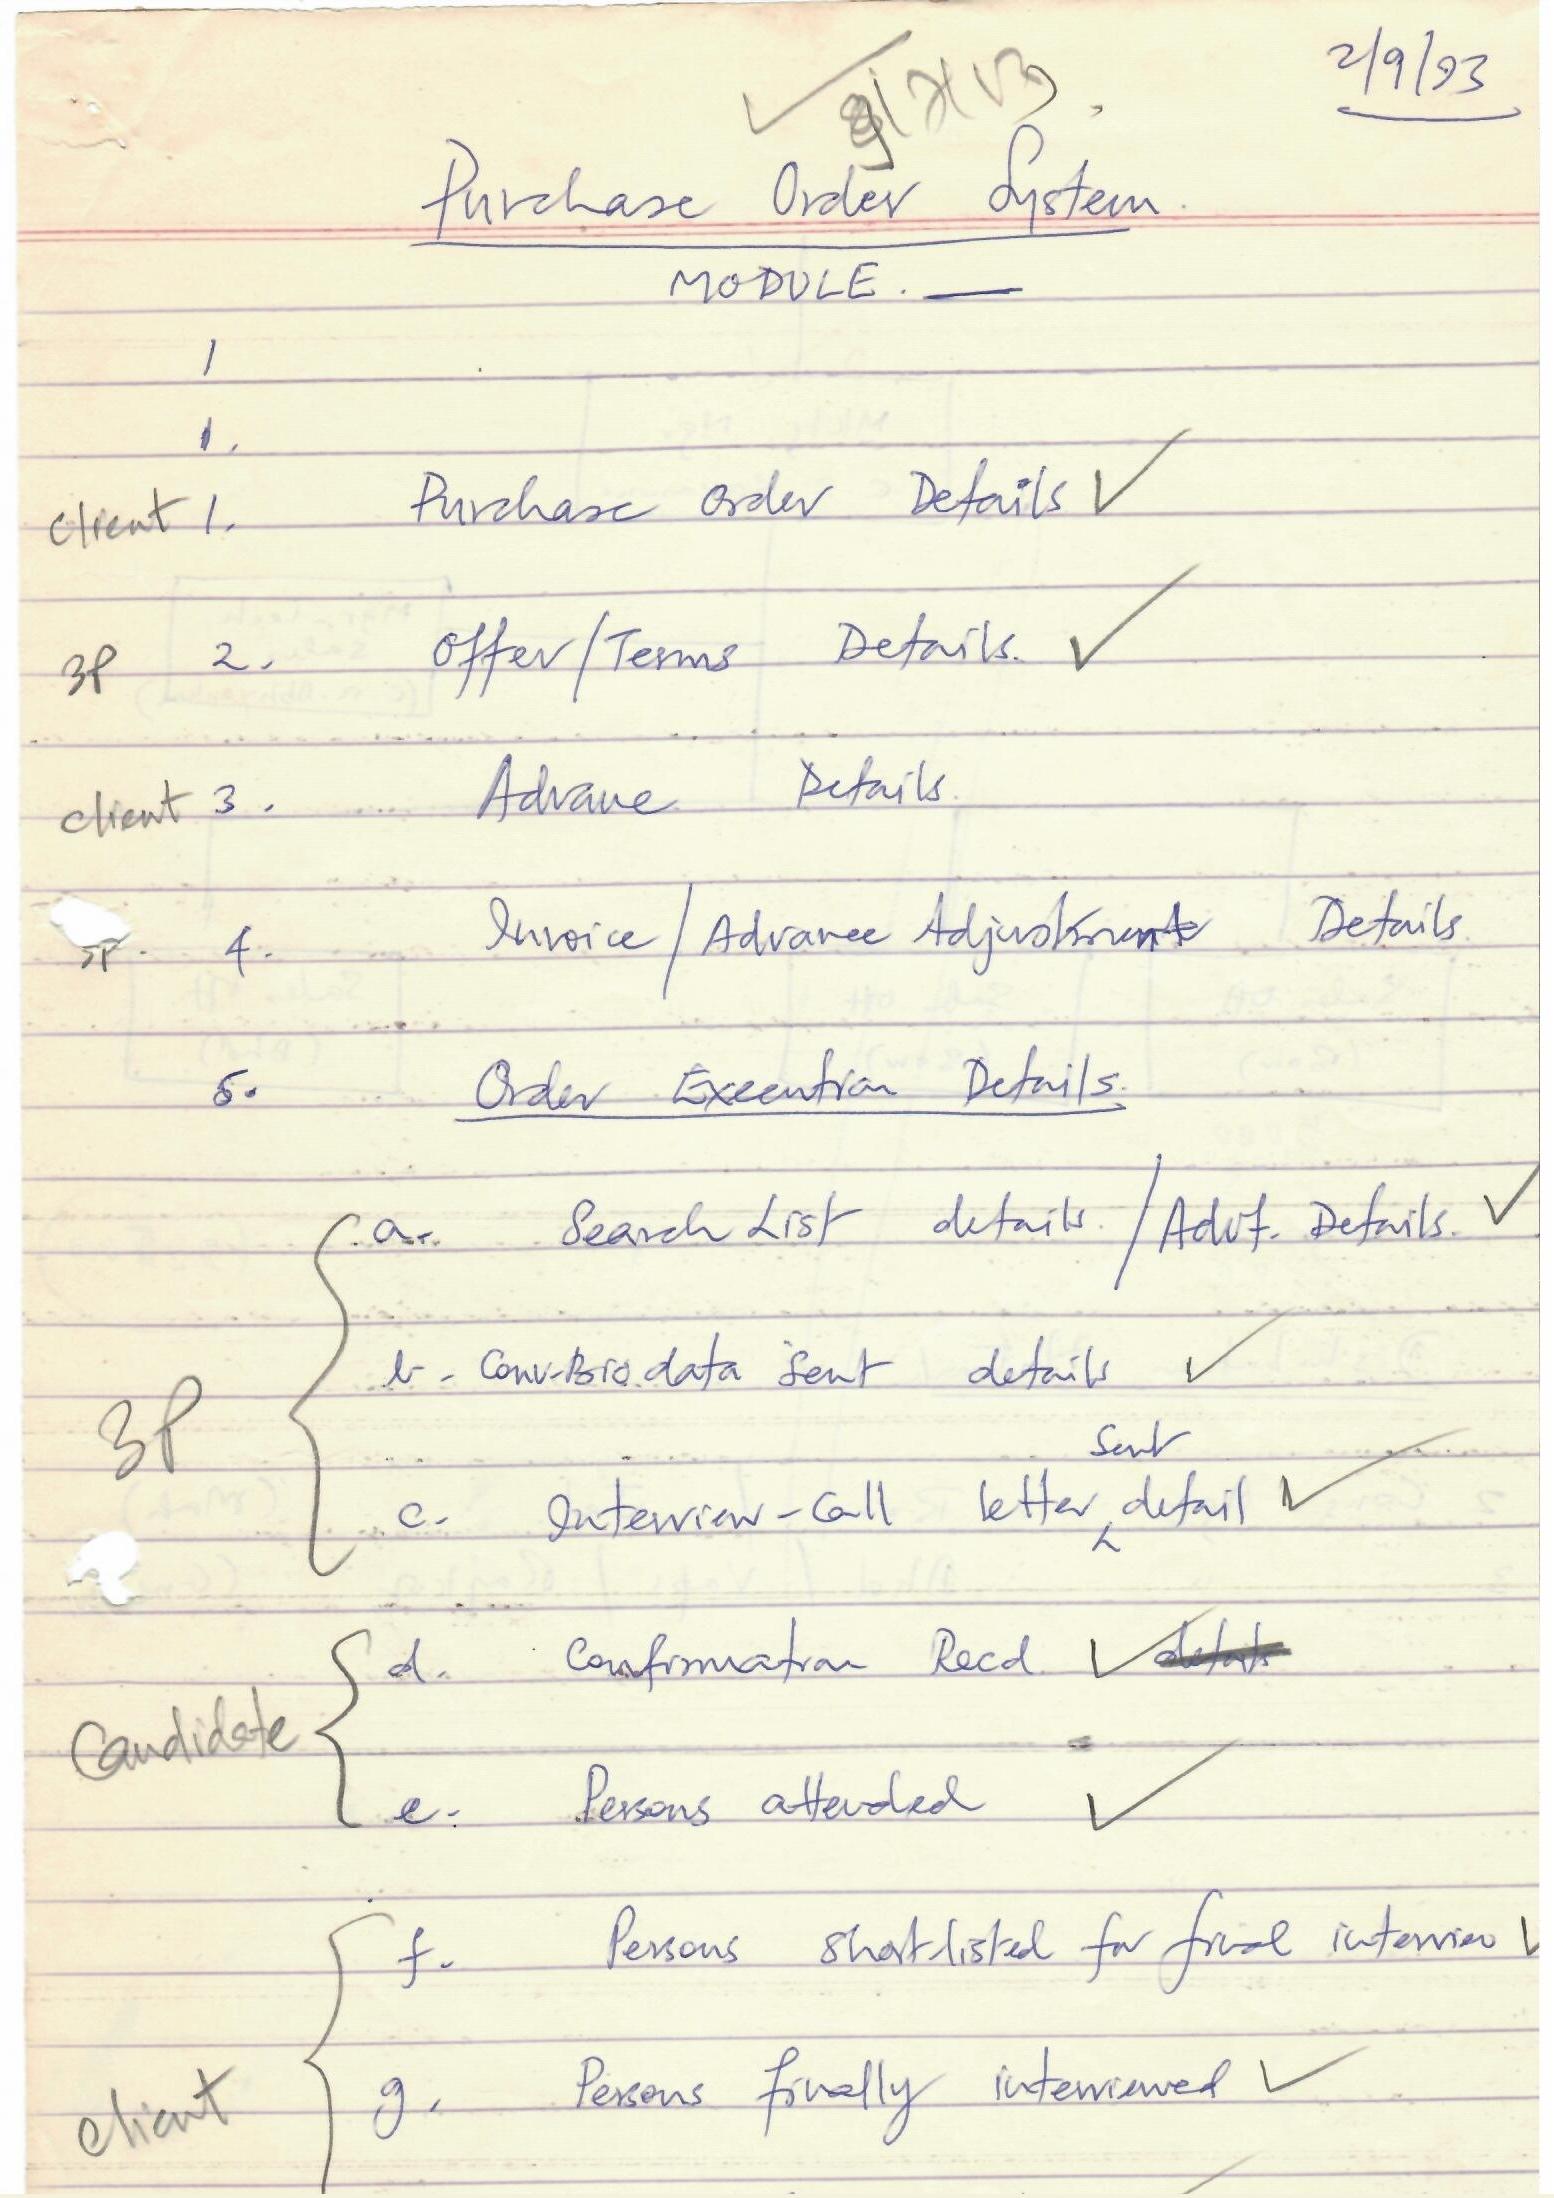 2/9/93
Purchase Order System.
MODULE. —
1
1.
client 1. Purchase Order Details ✓
3P 2. Offer/Terms Details. ✓
client 3. Advance Details.
3P. 4. Invoice/Advance Adjustment Details
5. Order Execution Details.
a. Search List details. / Advt. Details. ✓
b. Conv-Bio.data sent details ✓
3P
sent
c. Interview-Call letter detail ✓
d. Confirmation Recd. ✓ details
Candidate
e. Persons attended ✓
f. Persons shortlisted for final interview ✓
g. Persons finally interviewed ✓
client